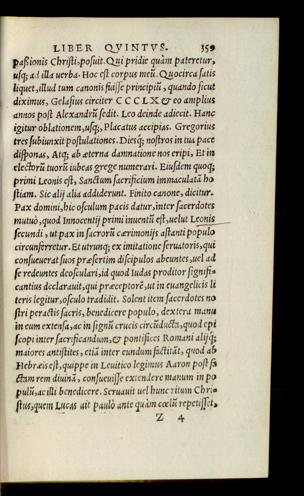 LIBER QVINTVS. 359
passionis Christi, posuit. Qui pridie quàm pateretur,
usq; ad illa uerba. Hoc est corpus meũ. Quocirca satis
liquet, illud tum canonis fuisse principiũ, quando sicut
diximus, Gelasius circiter CCCLX & eo amplius
annos post Alexandrũ sedit. Leo deinde adiecit. Hanc
igitur oblationem, usq;, Placatus accipias. Gregorius
tres subiunxit postulationes. Diesq; nostros in tua pace
disponas, Atq; ab æterna damnatione nos eripi, Et in
electorũ tuorũ iubeas grege numerari. Eiusdem quoq;
primi Leonis est, Sanctum sacrificium immaculatã ho
stiam. Sic alij alia addiderunt. Finito canone, dicitur.
Pax domini, hic osculum pacis datur, inter sacerdotes
mutuò, quod Innocentij primi inuentũ est, uelut Leonis
secundi, ut pax in sacrorũ cærimonijs astanti populo
circunferretur. Et utrunq; ex imitatione seruatoris, qui
consueuerat suos præsertim discipulos abeuntes, uel ad
se redeuntes deosculari, id quod Iudas proditor signifi-
cantius declarauit, qui præceptorẽ, ut in euangelicis li
teris legitur, osculo tradidit. Solent item sacerdotes no
stri peractis sacris, benedicere populo, dextera manu
in eum extensa, ac in signũ crucis circũducta, quod epi
scopi inter sacrificandum, & pontifices Romani alijq;
maiores antistites, etiã inter eundum factitãt, quod ab
Hebræis est, quippe in Leuitico legimus Aaron post fa
ctam rem diuinã, consueuisse extendere manum in po
pulũ, ac illi benedicere. Seruauit uel hunc ritum Chri-
stus, quem Lucas ait paulò ante quàm cœlũ repetisset,
Z 4